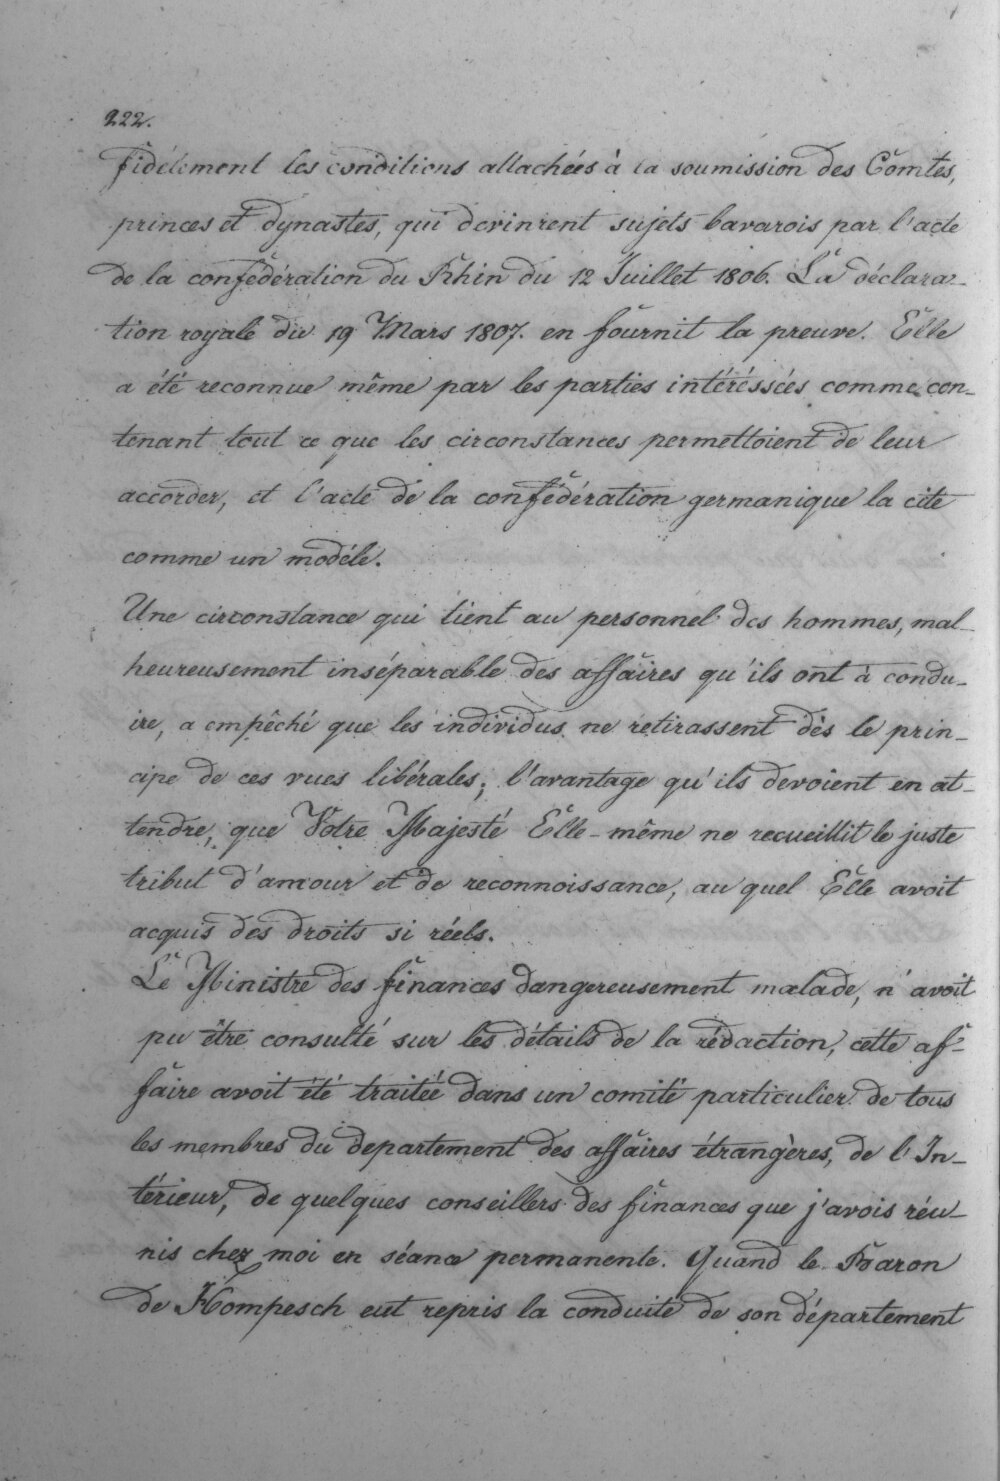 222.
fidélement les conditions attachées à la soumission des Comtes,
princes et dynastes, qui devinrent sujets bavarois par l'acte
de la confédération du Rhin du 12 Juillet 1806. La déclara-
tion royale du 19 Mars 1807. en fournit la preuve. Elle
a été reconnue même par les parties intéréssées comme con-
tenant tout ce que les circonstances permettoient de leur
accorder, et l'acte de la confédération germanique la cite
comme un modéle.
Une circonstance qui tient au personnel des hommes, mal-
heureusement inséparable des affaires qu'ils ont à condu-
ire, a empêché que les individus ne retirassent dès le prin-
cipe de ces vues libérales; l'avantage qu'ils devoient en at-
tendre, que Votre Majesté Elle-même ne recueillit le juste
tribut d'amour et de reconnoissance, au quel Elle avoit
acquis des droits si réels.
Le Ministre des finances dangereusement malade, n'avoit
pu être consulté sur les détails de la rédaction, cette af-
faire avoit été traitée dans un comité particulier de tous
les membres du departement des affaires étrangères, de l'In-
térieur, de quelques conseillers des finances que j'avois réu-
nis chez moi en séance permanente. Quand le Baron
de Hompesch eut repris la conduite de son département